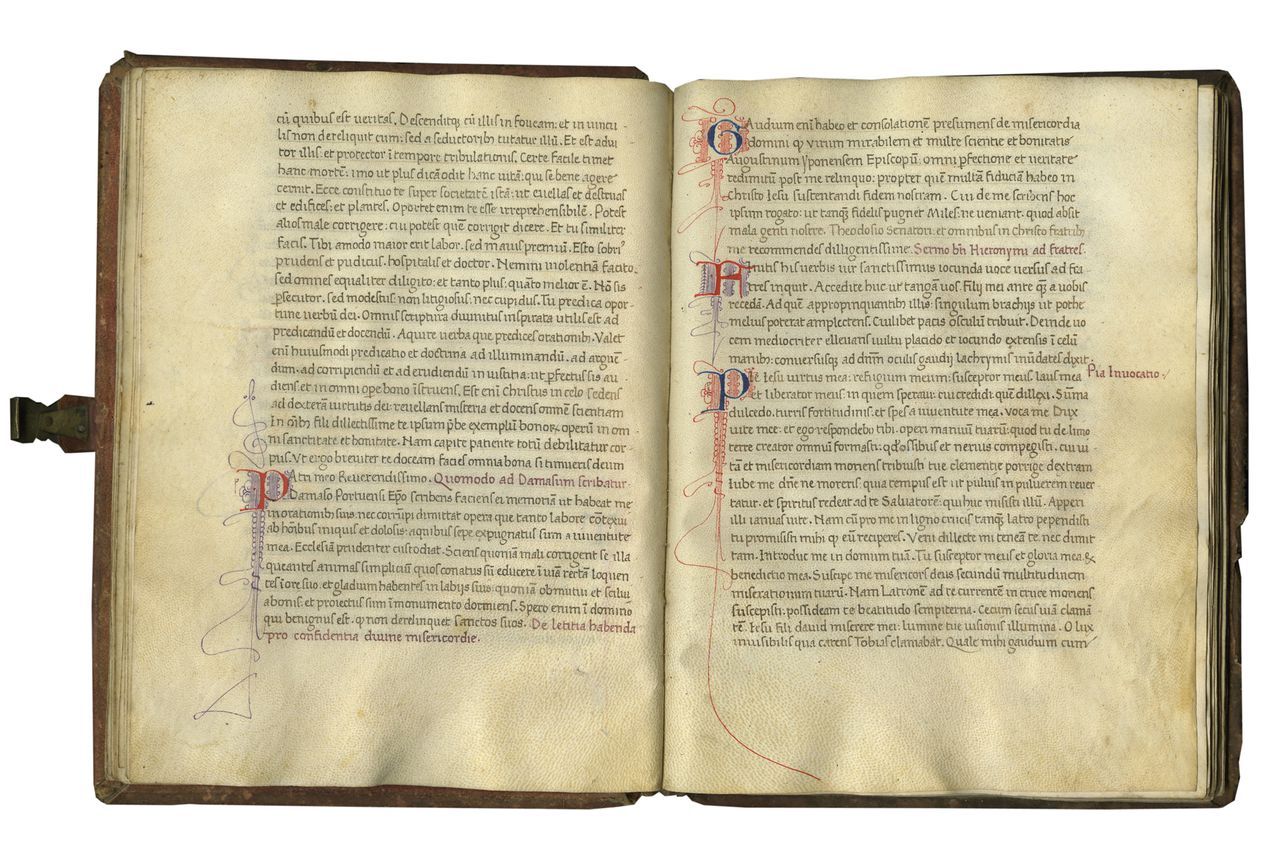 cū quibus est veritas. Descenditq; cū illis in foveam: et in vincu-
lis non dereliquit eum: sed a seductorib; tutatur illū. Et est adiu
tor illis: et protector ī tempore tribulationis. Certe facile timet
hanc mortē: imo ut plus dicā odit hanc vitā: qui se bene agere
cernit. Ecce constituo te super societatē istā: ut evellas et destruas
et edifices: et plantes. Oportet enim te esse irreprehensibilē. Potest
alios male corrigere: cui potest quē corrigit dicere. Et tu similiter
facis. Tibi amodo maior erit labor. sed maius premiū. Esto sobri'
prudens et pudicus. hospitalis et doctor. Nemini violentiā facito.
sed omnes equaliter diligito: et tanto plus: quāto melior ē. Nō sis
ꝑsecutor. sed modestus. non litigiosus: nec cupidus. Tu predica opor-
tune verbū dei. Omnis scriptura divinitus inspirata utilis est ad
predicandū et docendū. Aquire verba que predices orationib;. Valet
enī huiusmodi predicatio et doctrina ad illuminandū. ad arguē-
dum: ad corripiendū et ad erudiendū in iustitia: ut ꝑfectus sis au-
diens et in omni ope bono īstruens. Est enī Christus in celo sedens
ad dexterā virtutis dei: revellans misteria et docens omnē scientiam
In oīb; fili dillectissime te ipsum p̄be exemplū bonoꝝ operū in om
ni sanctitate et bonitate. Nam capite patiente totū debilitatur cor-
pus. Ut ergo breviter te doceam facies omnia bona si timueris deum
PAtri meo Reverendissimo. Quomodo ad Damasum scribatur.
Damaso Portuensi Epo scribens facies ei memoriā ut habeat me
in orationib; suis. nec corrūpi dimittat opera que tanto labore cōtexui
ab hōnibus iniquis et dolosis: a quibus sepe expugnatus sum a iuventute
mea. Ecclesiā prudenter custodiat. Sciens quoniā mali corrigent se illa
queantes animas simplicium quos conatus sū educere ī viā rectā loquen
tes ī ore suo. et gladium habentes in labijs suis: quoniā obmutui et silui
a bonis: et proiectus sum ī monumento dormiens. Spero enim ī domino
qui benignus est. q̄ non derelinquet sanctos suos. De letitia habenda
pro confidentia divine misericordie.
GAudium enī habeo et consolationē presumens de misericordia
domini q̄ virum mirabilem et multe scientie et bonitatis
Augustinum Yponensem Episcopū: omni ꝑfectione et veritate
redimitū post me relinquo: propter quē multā fiduciā habeo in
Christo Iesu sustentandi fidem nostram. Cui de me scribens hoc
ipsum rogato: ut tanq̄ fidelis pugnet Miles. ne veniant. quod absit
mala genti nostre. Theodosio Senatori: et omnibus in Christo fratrib;
me recommendes dilligentissime. Sermo bti Hieronymi ad fratres.
FInitis his verbis vir sanctissimus iocunda voce versus ad fra
tres inquit. Accedite huc ut tangā vos filij mei ante q̄ a vobis
recedā. Ad quē appropinquantib; illis: singulum brachijs ut pothe
melius poterat amplectens. Cuilibet pacis osculū tribuit. Deinde vo
cem mediocriter ellevans vultu placido et iocundo extensis ī celū
manib;: conversusq; ad dnm̄ oculis gaudij lachrymis inūdates dixit.
Pia Invocatio.
PIe Iesu virtus mea: refugium meum: susceptor meus. laus mea
et liberator meus. in quem speravi: cui credidi quē dillexi. Sūma
dulcedo. turris fortitudinis. et spes a iuventute mea. voca me Dux
vite mee: et ego respondebo tibi. operi manuū tuarū: quod tu de limo
terre creator omniū formasti: qd̄ ossibus et nervis compegisti. cui vi
tā et misericordiam moriens tribuisti tue clementie porrige dextram
Iube me dn̄e ne moreris. qua tempus est ut pulvis in pulverem rever
tatur. et spiritus redeat ad te Salvatorē: qui huc misisti illū. Apperi
illi ianuas vite. Nam cū pro me in ligno crucis tanq̄ latro pependisti
tu promisisti mihi q̄ eū reciperes. Veni dillecte mi tenea te: nec dimit
tam. Introduc me in domum tuā. Tu susceptor meus et gloria mea &
benedictio mea. Suscipe me misericors deus secundū multitudinem
miserationum tuarū. Nam Latronē ad te currentē in cruce moriens
suscepisti: possideam te beatitudo sempiterna. Cecum secus viā clamā
tē. Iesu fili david miserere mei: lumine tue visionis illumina. O lux
invisibilis qua carens Tobias clamabat. Quale mihi gaudium cum